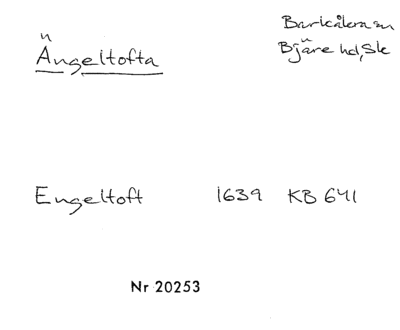 Ängeltofta
Barkåkra sn
Bjäre hd, Sk
Engeltoft 1639 KB 641
Nr 20253